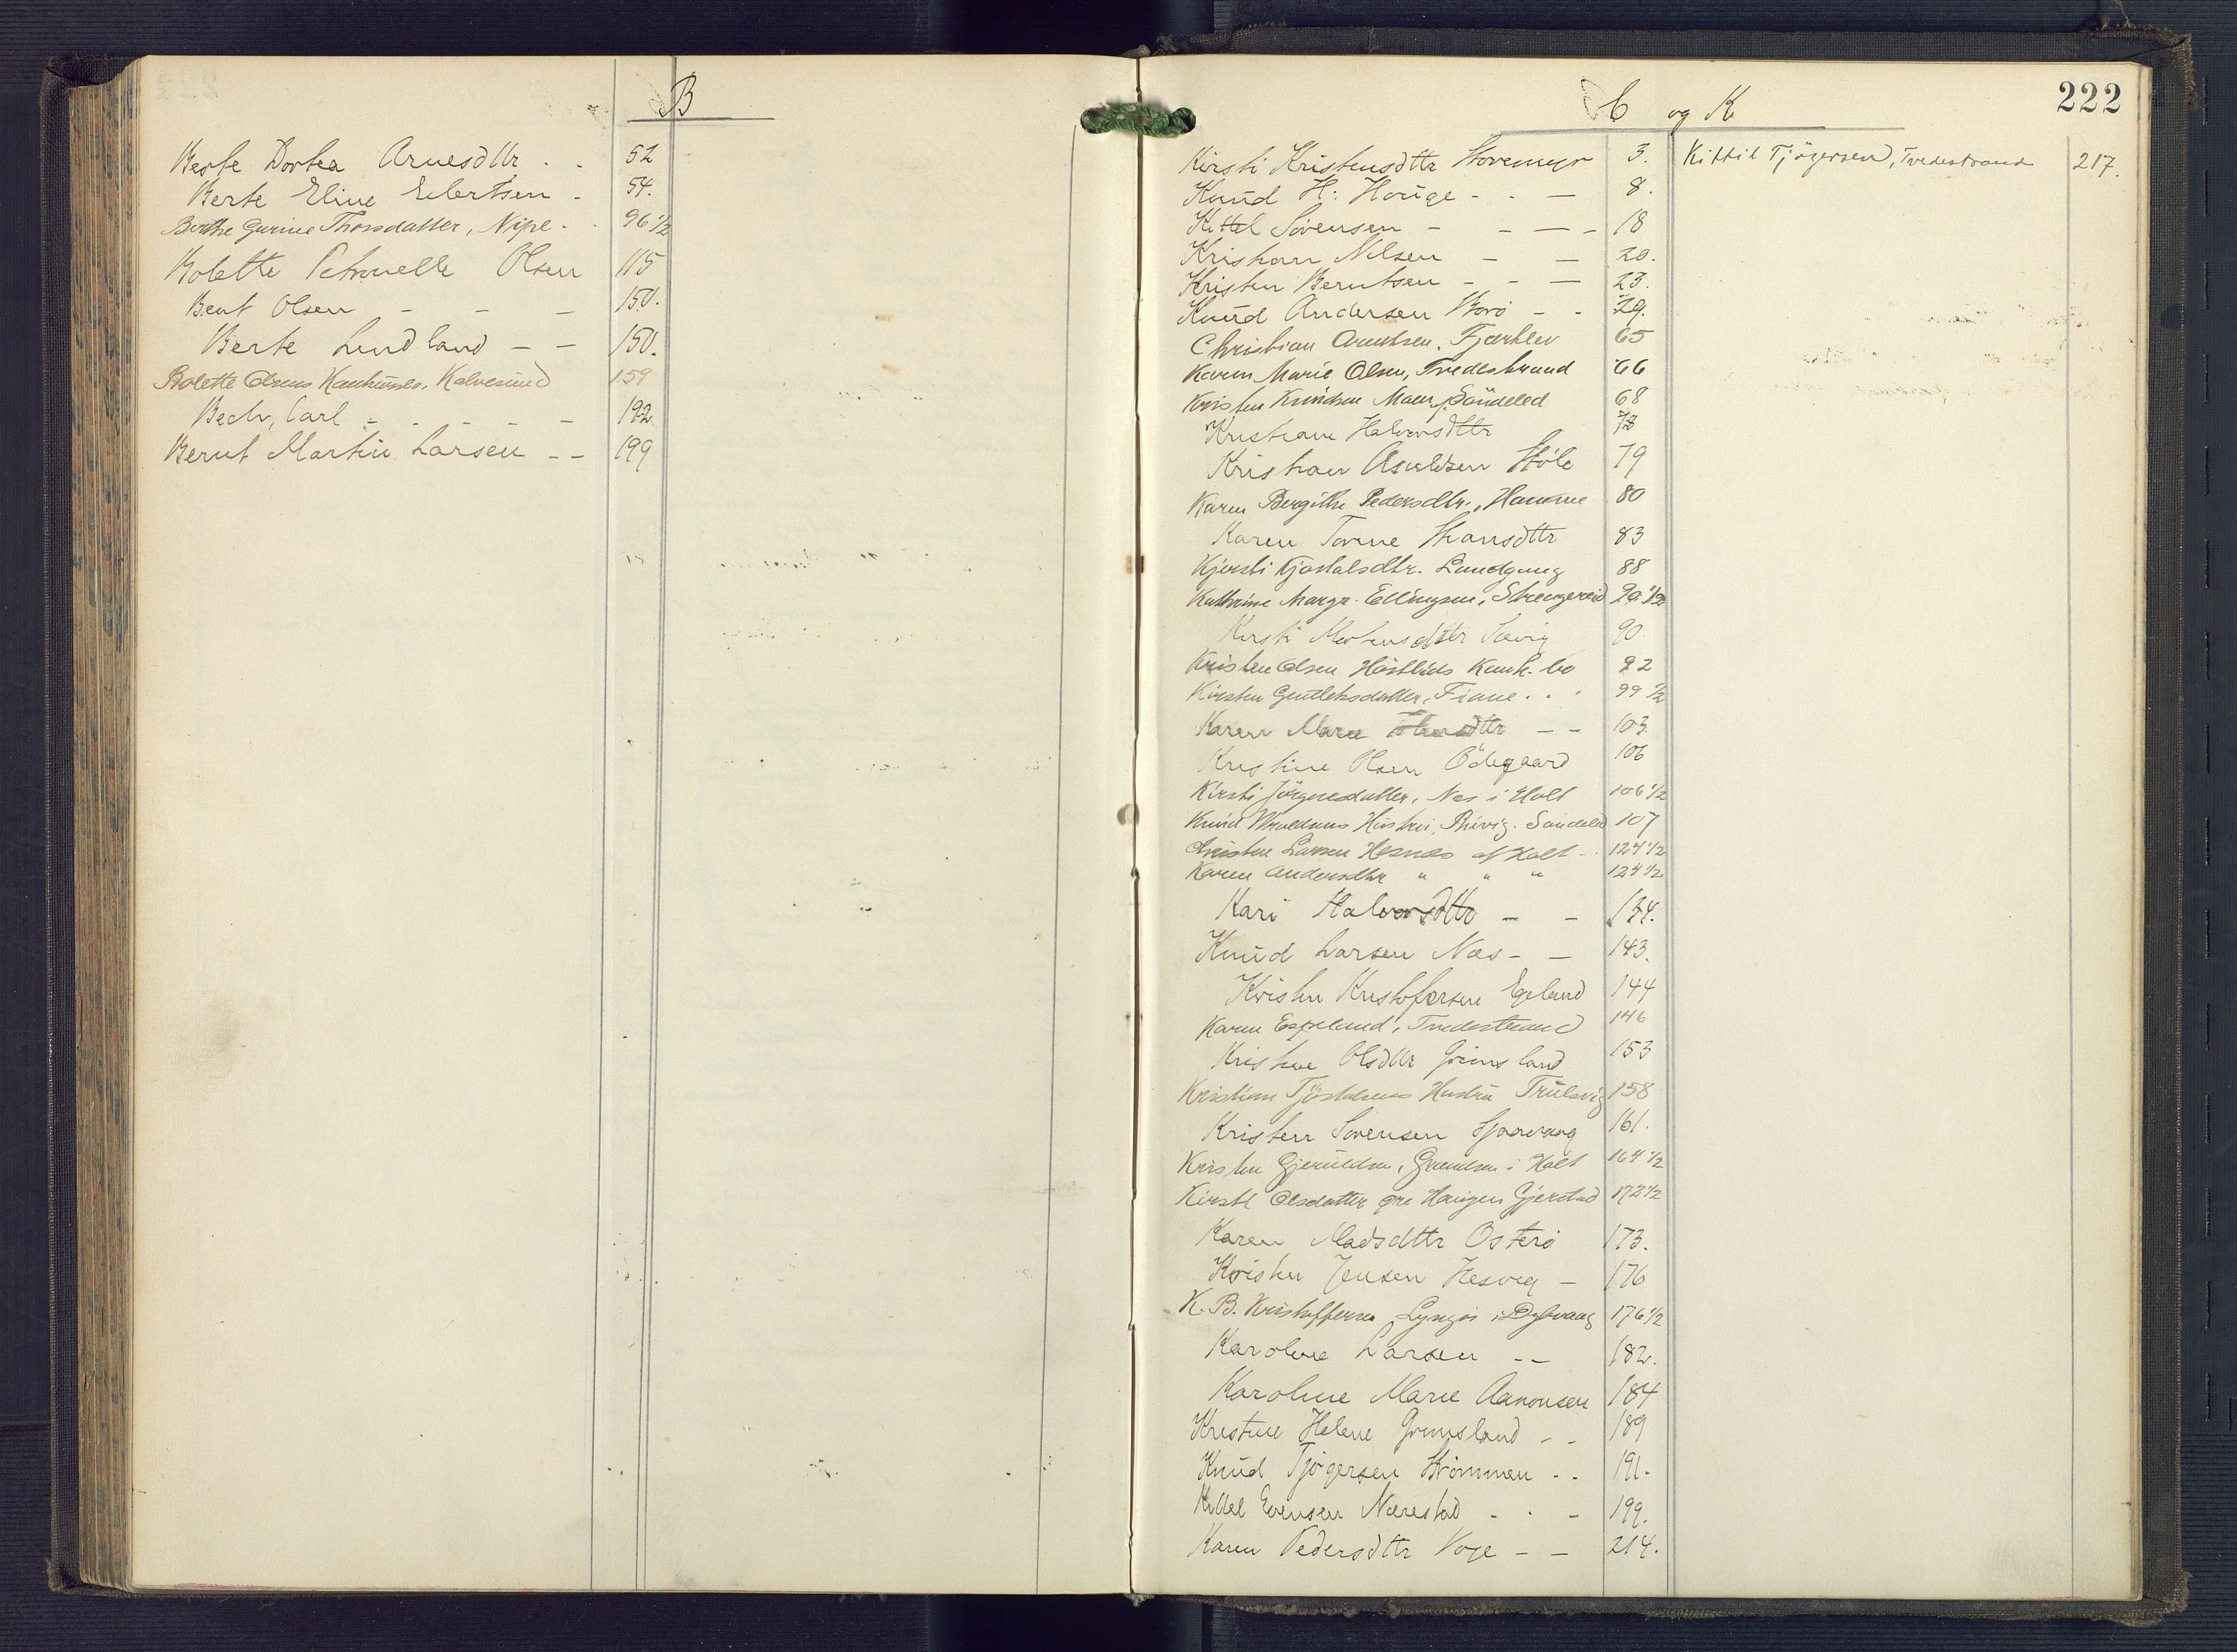 B
Berte Dortea Arnesdttr . . 52
Berte Eline Eilertsen - 54.
Berthe Gurine Thorsdatter, Nipe - . 96 1/2
Bolette Petronelle Olsen 115
Bent Olsen - - - 150.
Berte Lindland - - 150.
Bolette Olsens Kalvesund 159
Bech, Carl - - - - 192
Bernt Martin Larsen - - 199
222
C og K
Kirsti Kristensdttr Storemyr 3.
Knud H: Houge - - - 8.
Kittel Sörensen - - - - 18
Kristian Nilsen - - 20.
Kristen Berntsen - - - 23.
Knud Andersen Borö - - 29.
Christian Fjærklev 65
Karen Marie Olsen, Tvedestrand 66
Kristen Knudsen Moen, Söndeled 68
Kristiane Halvorsdttr 78
Kristian Asuldsen Støle 79
Karen Bergithe Pedersdtr., Hamme 80
Karen Tomine Hansdttr 83
Kjersti Kjöstalsdtr. Lundgang 88
Kathrine Margr. Ellingsen, Strengereid 90 1/2
Kirsti Mortensdttr Sævig 90
Kristen Olsen Kank. bo 92
Kirsten Gundleksdatter, Fiane . . . 99 1/2
Karen Marie dttr - - 103.
Kristine Olsen Ödegaard 106
Kirsti Jörgensdatter, Næs i Holt 106 1/2
Knud Hustru, Söndeled 107
Christen Larsen Hesnes af Holt - 124 1/2
Karen Andersdtr " " " 124 1/2
Kari Halvorsdttr - - 134.
Knud Larsen Næs - - 143.
Kristen Kristofersen Egeland 144
Karen Espeland, Tvedestrand 146
Kristine Olsdttr Grimsland 153
Kristian Tjöstelsens Hustru Trulsvig 158
Kristen Sorensen 161.
Kristen Gjeruldsen, i Holt 164 1/2
Kirsti Olsdatter Haugen Gjerstad 172 1/2
Karen Madsdttr Osterö 173.
Kristen Jensen Hesvig - 176
K. B. Kristoffersen Lyngör i Dybvaag 176 1/2
Karoline Larsen - - 182.
Karoline Marie Aanonsen 184
Kristine Helene Grimsland - - 189
Knud Tjögersen Strömmen - - 191.
Kittel Evensen Nærestad - . - 199.
Karen Pedersdttr Voje - - 214.
Kittil Tjögersen, Tvedestrand 217.